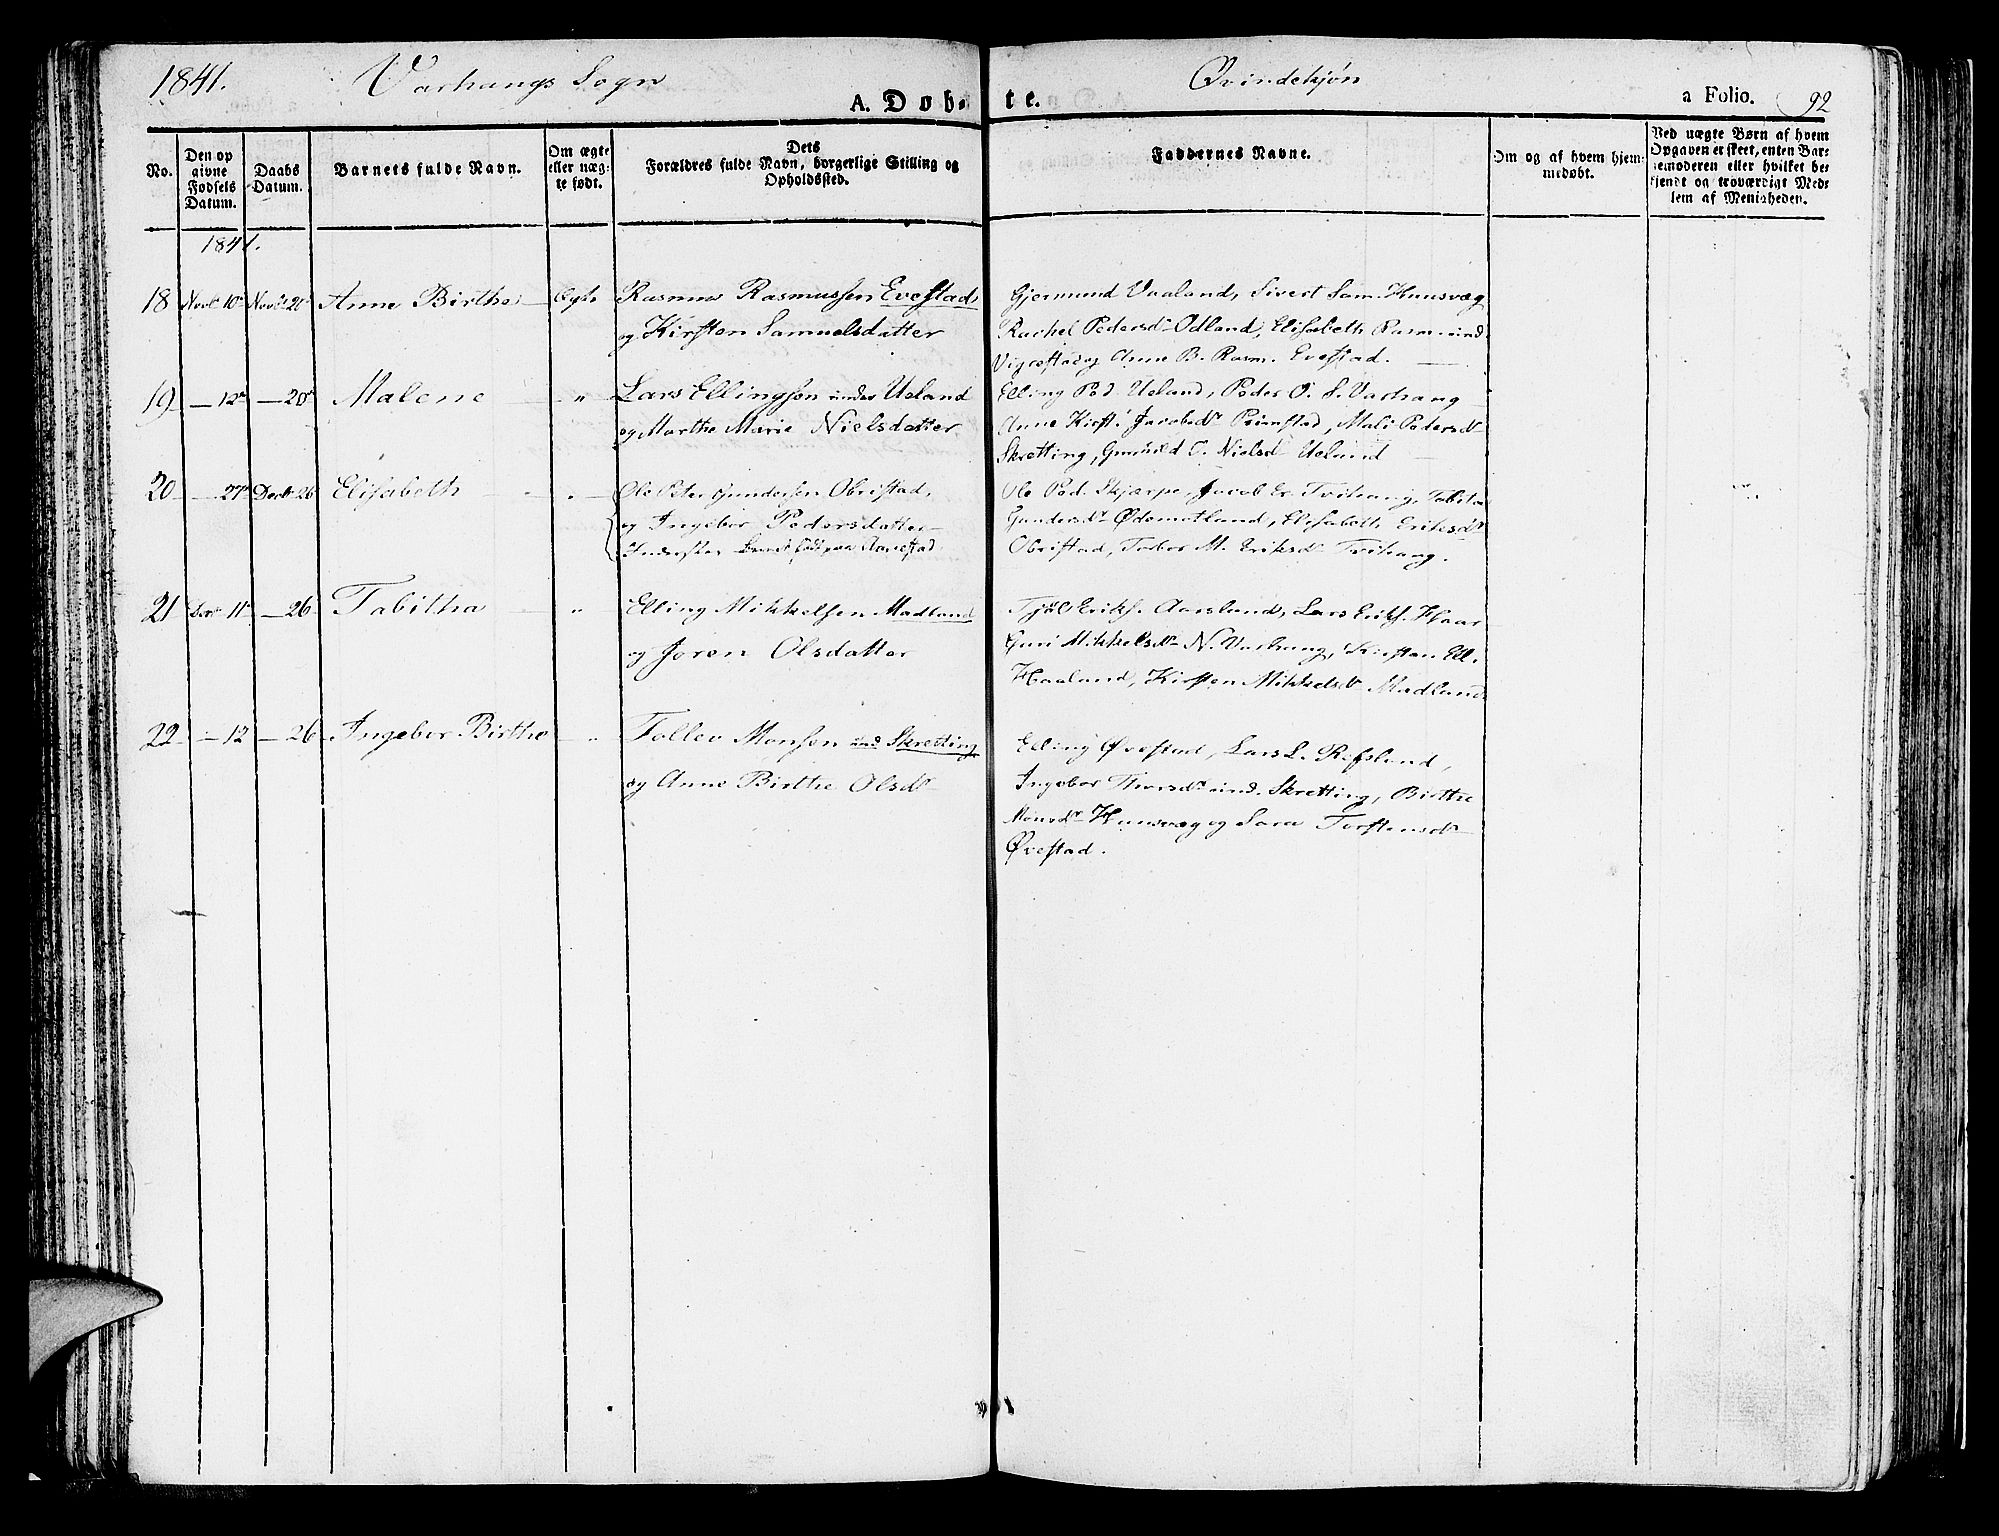 1841. Varhaugs Sogn Qvindekjøn
A. Døbte. a Folio. 92
No. Den opgivne Fødsels Datum. Daabs Datum. Barnets fulde Navn. Om ægte eller nægte født. Dets Forældres fulde Navn, borgerlige Stilling og Opholdssted. Faddernes Navne. Om og af hvem hjemmedøbt. Ved uægte Børn af hvem Opgaven er skeet, enten Barnemoderen eller hvilket bekjendt og troværdigt Medlem af Menigheden.
1841.
18 Novbr 10de Novbr 20de Anne Birthe Ægte Rasmus Rasmussen Evestad,
og Kirsten Samuelsdatter
Gjermund Vaaland, Sivert Sam. Huusvæg
Rachel Pedersdr Odland, Elisabeth Rasm. ind.
Vigrestad og Anne B. Rasm. Evestad.
19 — 12te — 20de Malene " Lars Ellingsen under Ueland
og Marthe Marie Nielsdatter
Elling Ped. Ueland, Peder O. S. Varhaug
Anne Kirst. Jacobsdr Priimstad, Mali Pedersdr
Skretting, Gunild C. Nielsd Ueland
20 — 27de Decbr 26 Elisabeth " Ole Peter Gundersen Obristad,
og Ingebor Pedersdatter
Barnet født paa Aanestad.
Ole Ped. Skjærpe, Jacob Er. Tvihaug, Tabita
Gundersdr Ødemotland, Elisabeth Eriksdr
Obristad, Tabor M. Eriksdr Tvihaug.
21 Decbr 11te — 26 Tabitha " Elling Mikkelsen Madland
og Joren Olsdatter
Eriks. Aarsland, Lars Eriks. Haar
Guri Mikkelsdr N. Varhaug, Kirsten Ell.
Haaland, Kirsten Mikkelsdr Madland
22 — 12 — 26 Ingebor Birthe " Tollev Monsen und Skretting
og Anne Birthe Olsdr
Elling Øvestad, Lars L. Refsland,
Ingebor Thorsdr ind. Skretting, Birthe
Monsdr Huusvæg og Sara Torstensdr
Øvestad.